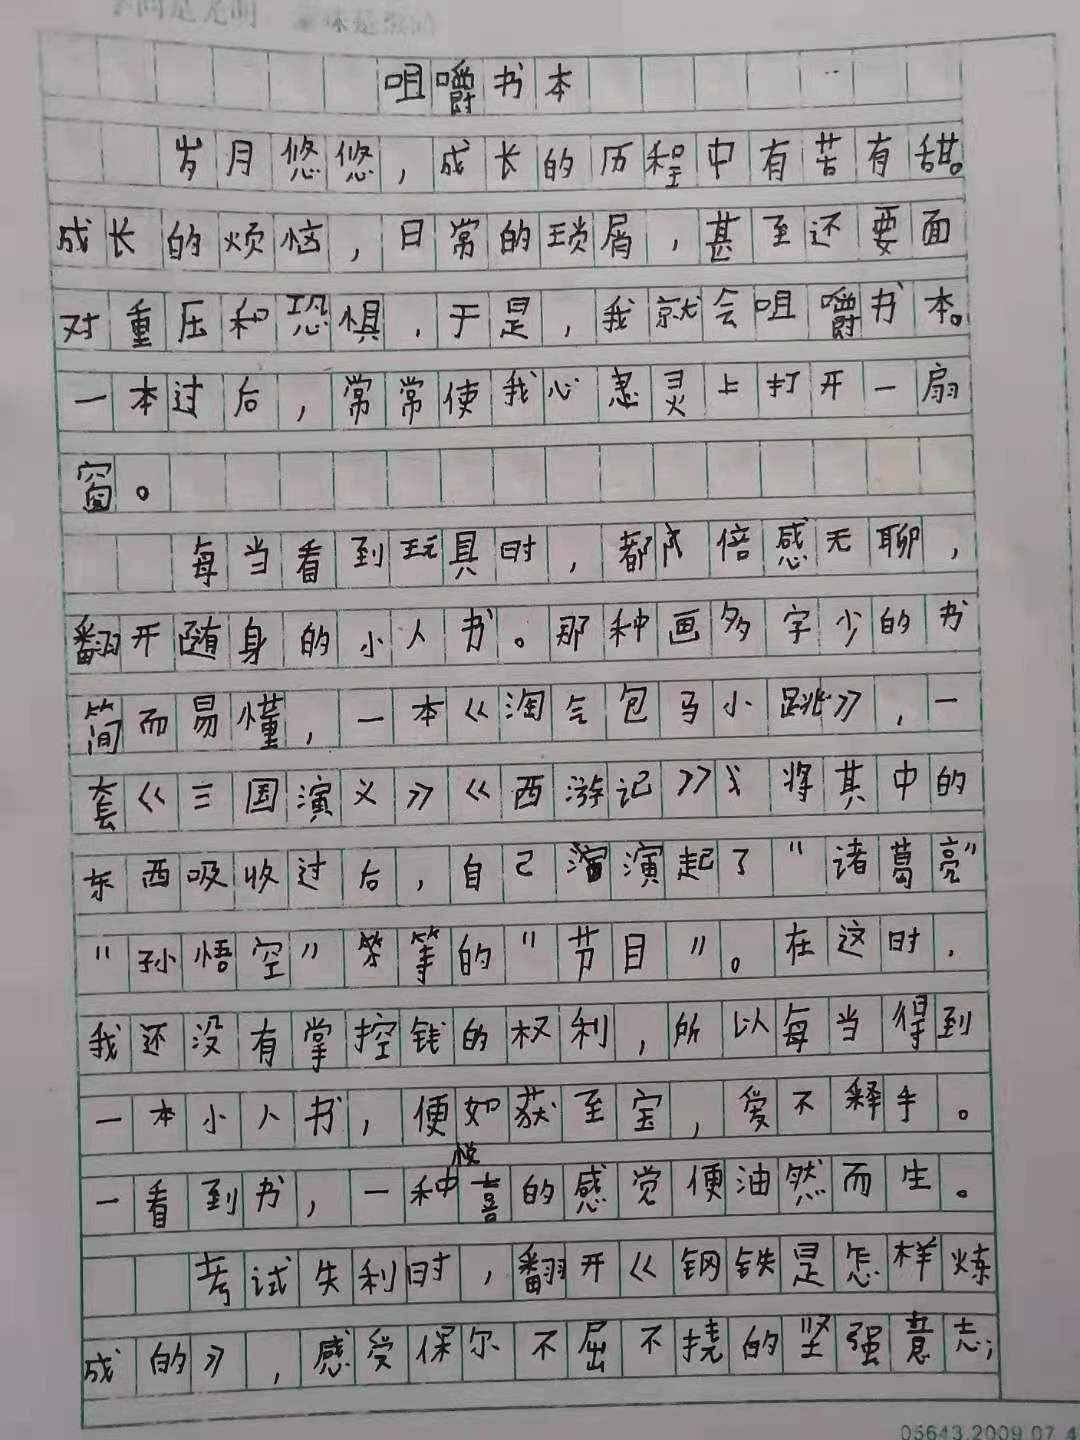 咀嚼书本
岁月悠悠，成长的历程中有苦有甜。
成长的烦恼，日常的琐屑，甚至还要面
对重压和恐惧，于是，我就会咀嚼书本。
一本过后，常常使我心灵上打开一扇
窗。
每当看到玩具时，都倍感无聊，
翻开随身的小人书。那种画多字少的书
简而易懂，一本《淘气包马小跳》，一
套《三国演义》《西游记》将其中的
东西吸收过后，自己演演起了“诸葛亮”
“孙悟空”等等的“节目”。在这时，
我还没有掌控钱的权利，所以每当得到
一本小人书，便如获至宝，爱不释手。
一看到书，一种喜悦的感觉便油然而生。
考试失利时，翻开《钢铁是怎样炼
成的》，感受保尔不屈不挠的坚强意志；
05643.2009.07.4